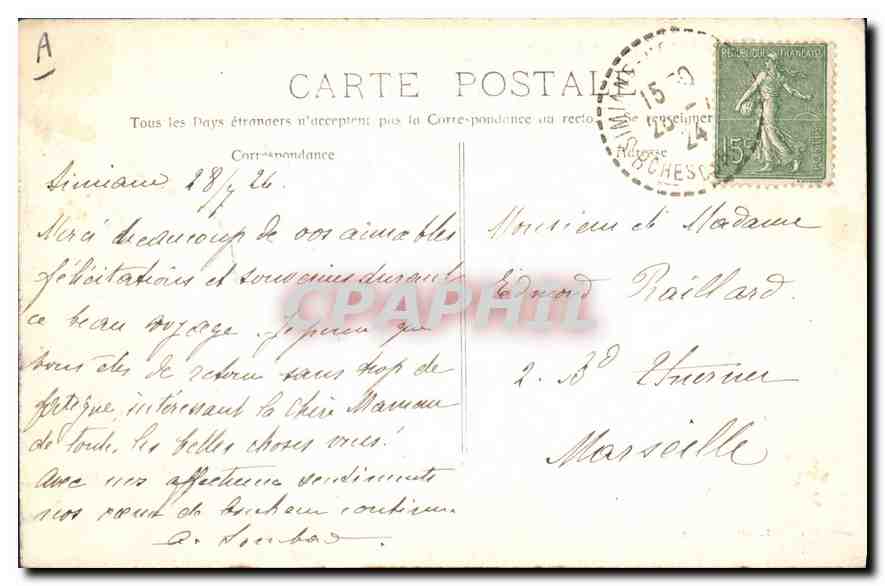 A
CARTE POSTALE
Tous les Pays étrangers n'acceptent pas la Correspondance au recto Se renseigner
Correspondance
Adresse
SIMIANE
15 30
25
24
BCHES DU
REPUBLIQUE FRANÇAISE
15c
POSTES
Simiane 28/7 26.
Merci beaucoup de vos aimables
félicitations et souvenirs durant
ce beau voyage. Je pense que
vous êtes de retour sans trop de
fatigue, intéressant la chère Maman
de toutes les belles choses vues!
Avec nos affectueux sentiments
nos vœux de bonheur continu
Monsieur et Madame
Edmond Raillard.
2. Bd
Marseille
CPAPHIL